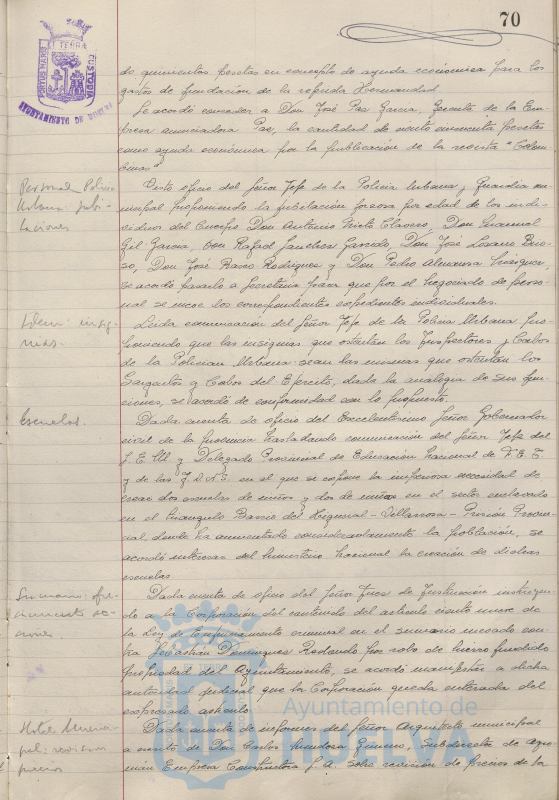 70
PORTUS MARIS
ET TERRÆ
CUSTODIA
AYUNTAMIENTO DE HUELVA
do quinientas pesetas en concepto de ayuda económica para los
gastos de fundación de la referida Hermandad.
Se acordó conceder a Don José Paz Garcia, Gerente de la Em-
presa anunciadora Paz, la cantidad de ciento cincuenta pesetas
como ayuda económica por la publicación de la revista "Colom-
binas"
Personal Policia
Urbana: jubi-
laciones
Visto oficio del Señor Jefe de la Policia Urbana y Guardia mu-
nicipal proponiendo la jubilación forzosa por edad de los indi-
viduos del Cuerpo Don Antonio Nieto Clavero, Don Manuel
Gil Garcia, Don Rafael Sanchez Garrido, Don José Lozano
Don José Basco Rodriguez y Don Pedro Almansa
se acordó pasarlo a Secretaria para que por el Negociado de perso-
nal se incoe los correspondientes expedientes individuales.
Idem: insig-
nias.
Leida comunicación del Señor Jefe de la Policia Urbana pro-
poniendo que las insignias que ostentan los Inspectores y Cabos
de la Polician Urbana sean las mismas que ostentan los
Sargentos y Cabos del Ejercito, dada la analogia de sus fun-
ciones, se acordó de conformidad con lo propuesto.
Escuelas.
Dada cuenta de oficio del Excelentisimo Señor Gobernador
civil de la provincia trasladando comunicación del Señor Jefe del
S.E.M. y Delegado Provincial de Educación Nacional de F.E.T.
y de las J.O.N.S. en el que se expone la imperiosa necesidad de
crear dos escuelas de niños y dos de niñas en el sector enclavado
en el triangulo Barrio del Higueral - Villarrosa - Prisión Provin-
cial donde ha aumentado considerablemente la población, se
acordó interesar del Ministerio Nacional la creación de dichas
escuelas
Sumario: ofre-
cimiento ac-
ciones
Dada cuenta de oficio del Señor Juez de Instrucción instruyen-
do a la Corporación del contenido del articulo ciento nueve de
la Ley de Enjuiciamiento criminal en el sumario incoado con-
tra Sebastián Dominguez Redondo por robo de hierro fundido
propiedad del Ayuntamiento, se acordó manifestar a dicha
autoridad judicial que la Corporación queda enterada del
expresado articulo.
Hotel Munici-
pal: revision
precios
Dada cuenta de informes del Señor Arquitecto municipal
a escrito de Don Carlos Mendoza Gimeno, Subdirector de Agro-
mán Empresa Constructora S.A. sobre revisión de precios de la
Ayuntamiento de
HUELVA